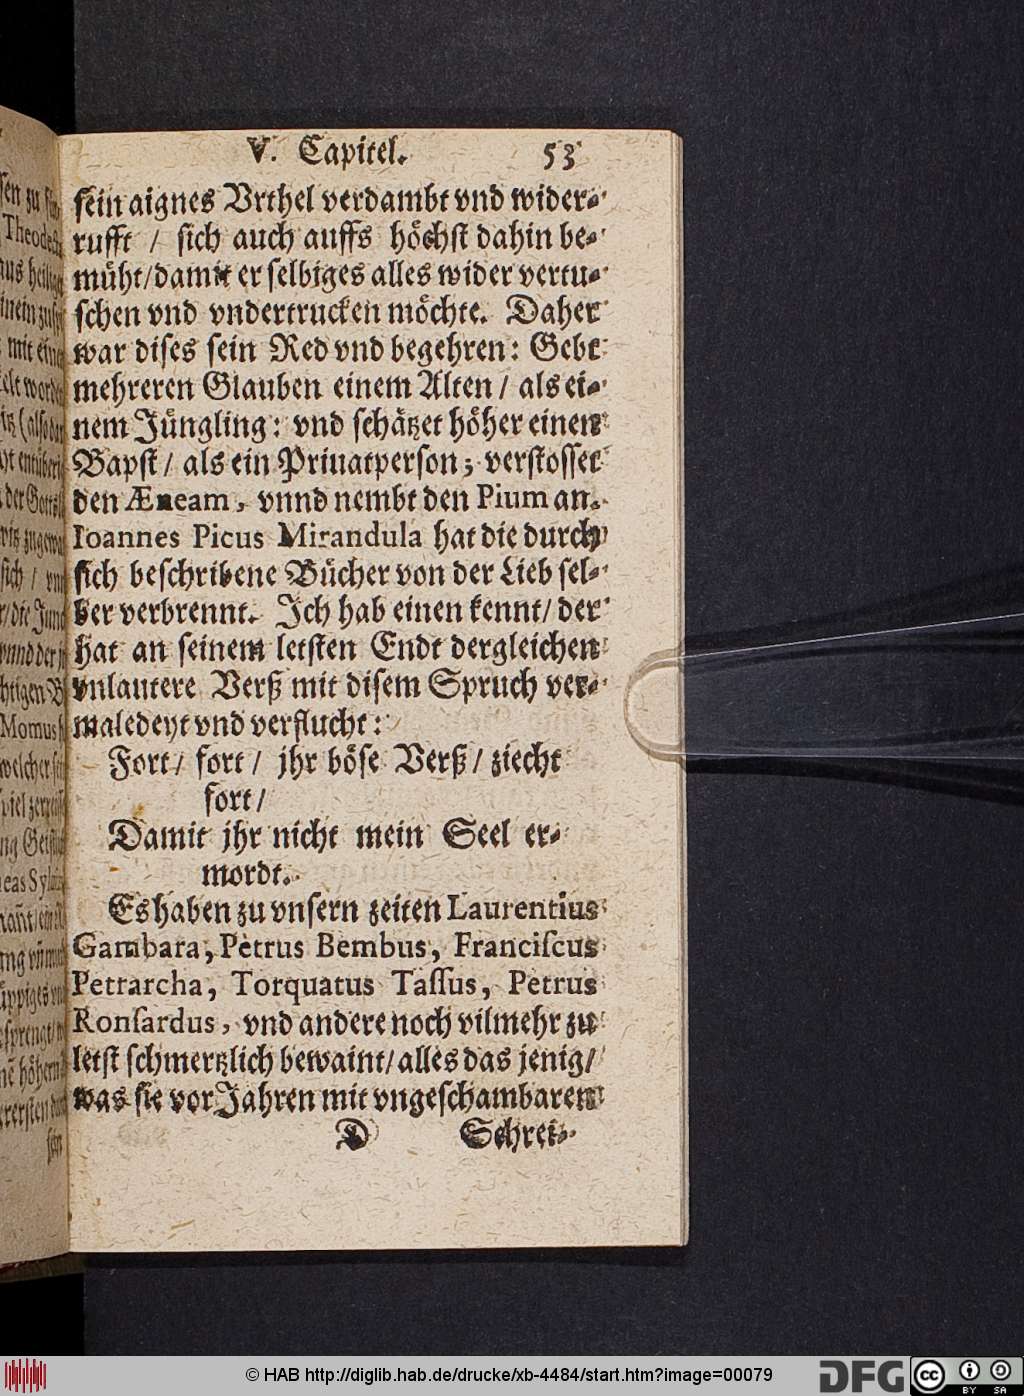 V. Capitel. 53
sein aignes Vrthel verdambt vnd wider-
rufft / sich auch auffs höchst dahin be-
müht/damit er selbiges alles wider vertu-
schen vnd vndertrucken möchte. Daher
war dises sein Red vnd begehren: Gebt
mehreren Glauben einem Alten / als ei-
nem Jüngling: vnd schätzet höher einen
Bapst / als ein Priuatperson; verstosset
den Æneam, vnnd nembt den Pium an.
Ioannes Picus Mirandula hat die durch
sich beschribene Bücher von der Lieb sel-
ber verbrennt. Ich hab einen kennt/ der
hat an seinem letsten Endt dergleichen
vnlautere Verß mit disem Spruch ver-
maledeyt vnd verflucht:
Fort / fort / jhr böse Verß / ziecht
fort /
Damit jhr nicht mein Seel er-
mordt.
Es haben zu vnsern zeiten Laurentius
Gambara, Petrus Bembus, Franciſcus
Petrarcha, Torquatus Taſſus, Petrus
Ronſardus, vnd andere noch vilmehr zu
letst schmertzlich bewaint/ alles das jenig/
was sie vor Jahren mit vngeschambaren
D Schrei-
sen zu
Theode
mit eine
der Gotts
sich /
Momus
welcher
sein
© HAB http://diglib.hab.de/drucke/xb-4484/start.htm?image=00079
DFG
cc
BY SA